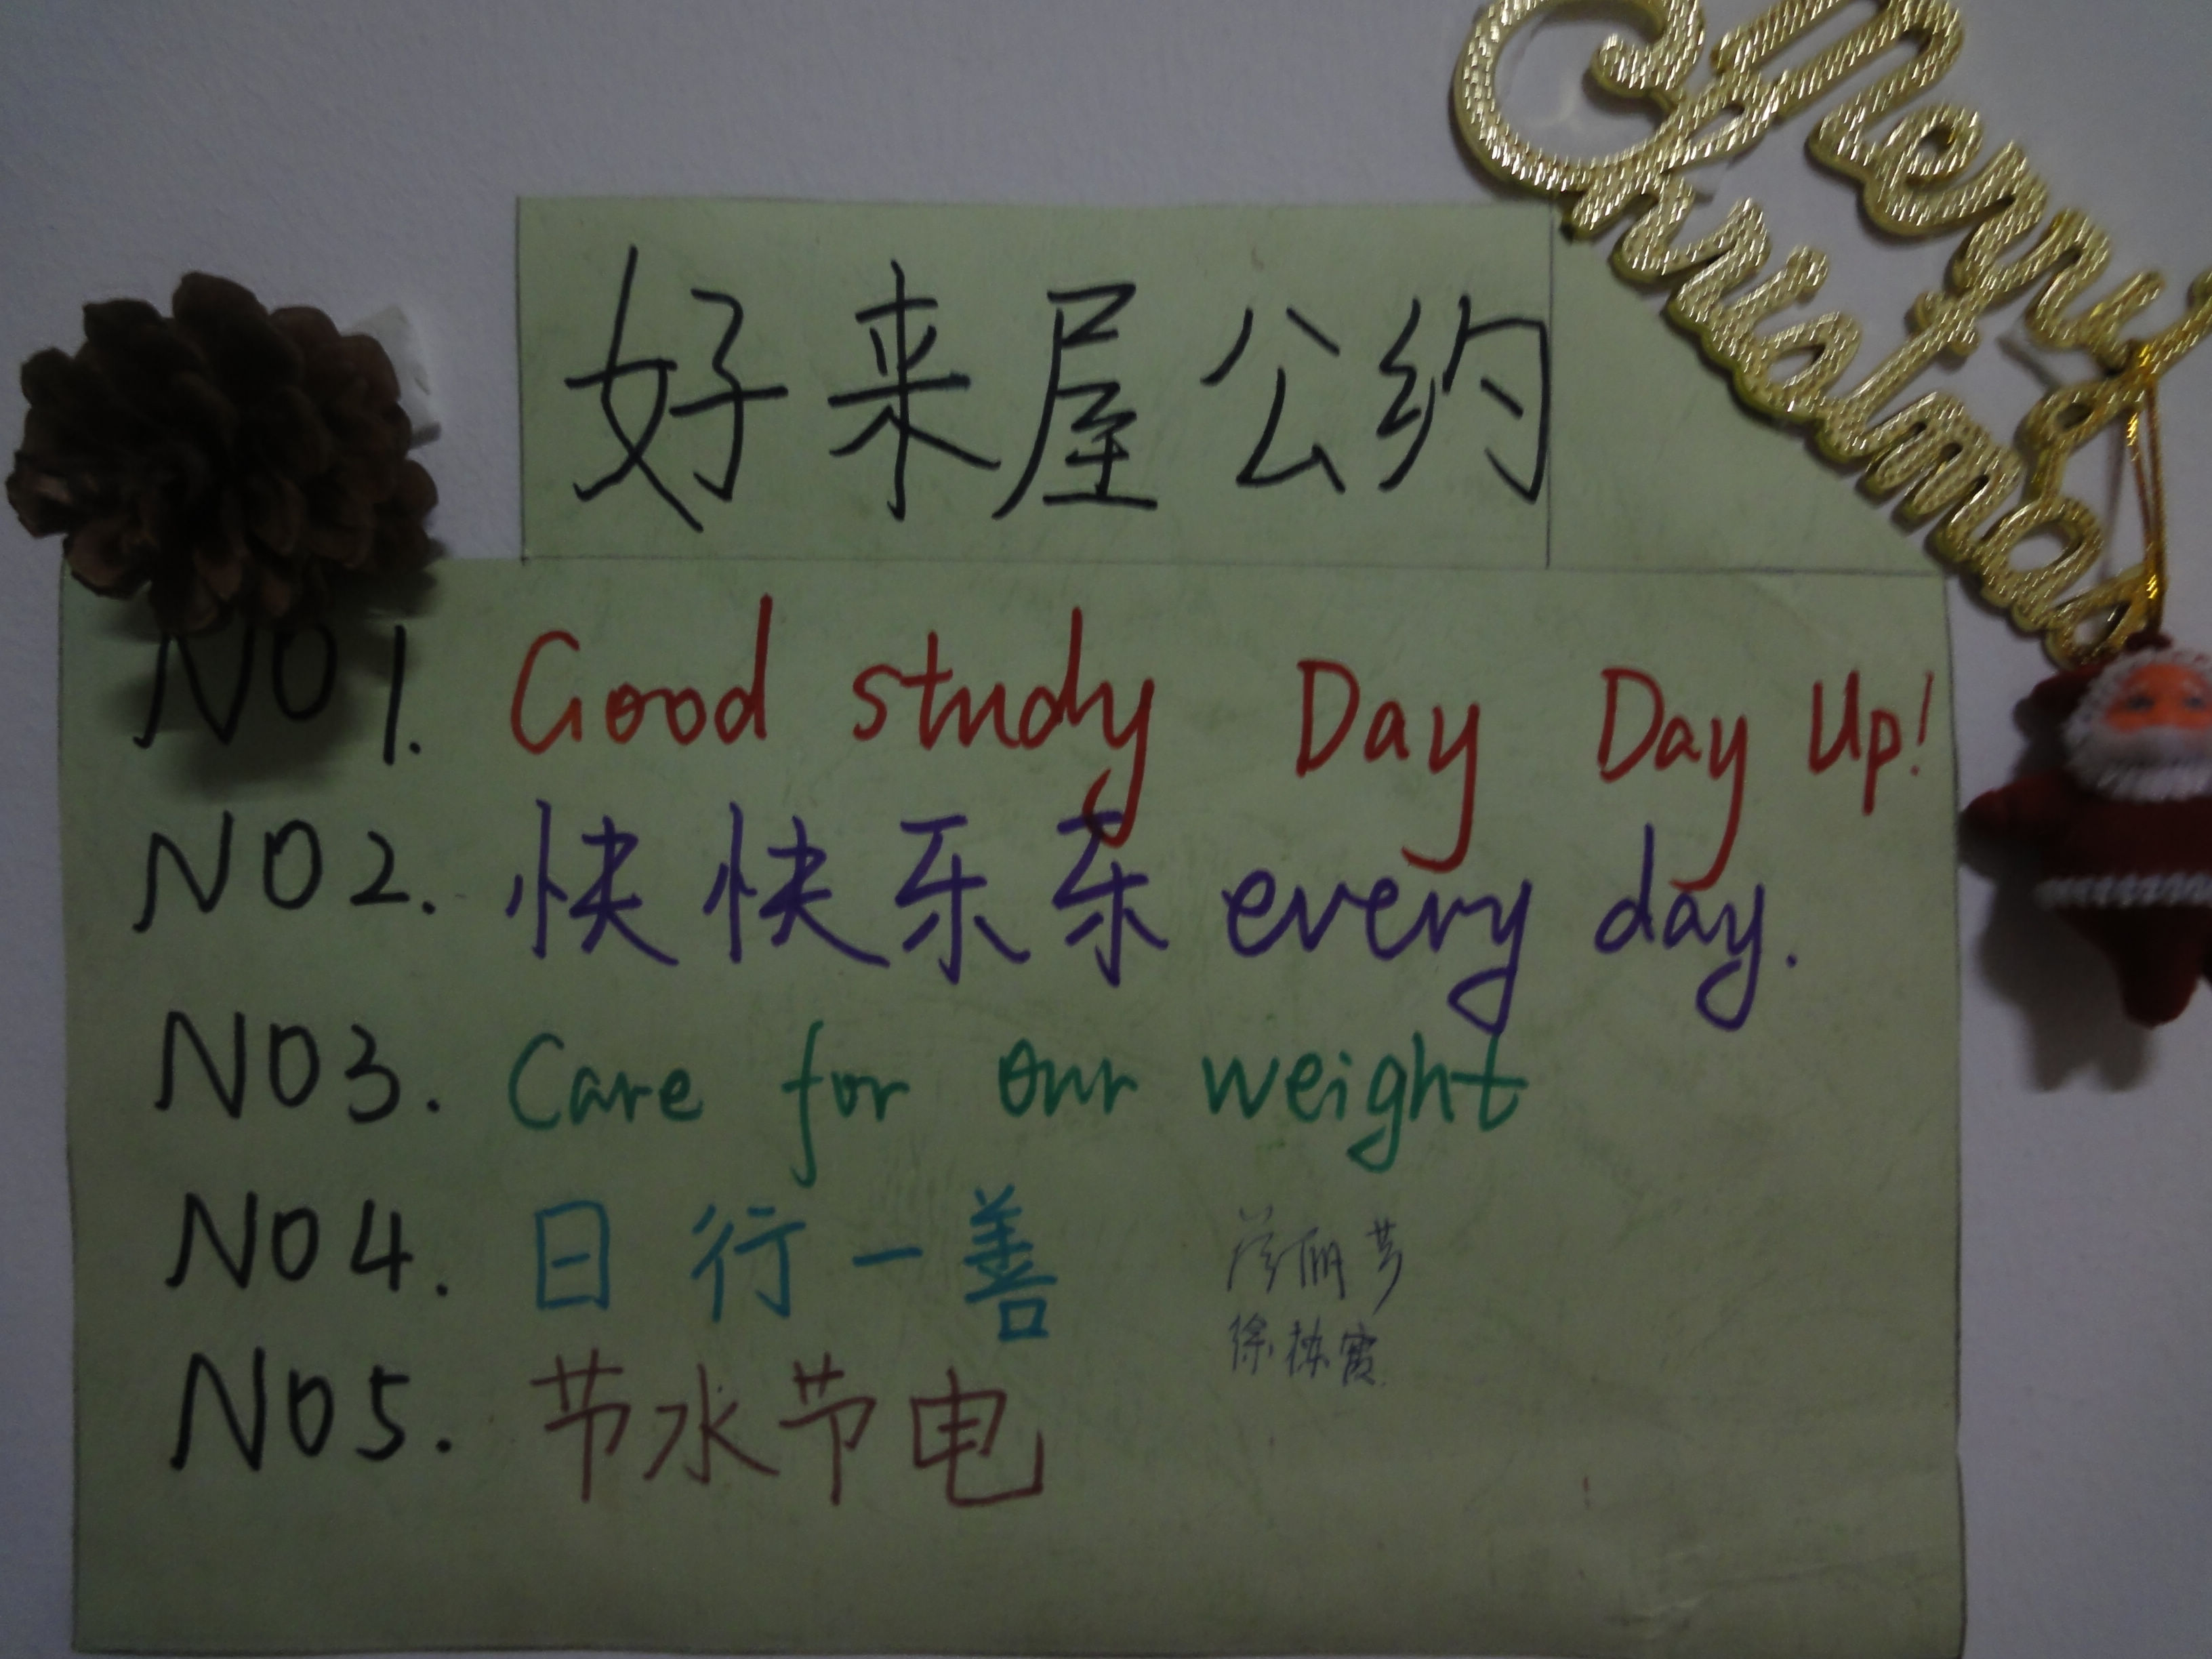 Merry
Christmas
好来屋公约
NO1. Good study Day Day Up!
NO2. 快快乐乐 every day.
NO3. Care for our weight
NO4. 日行一善
NO5. 节水节电